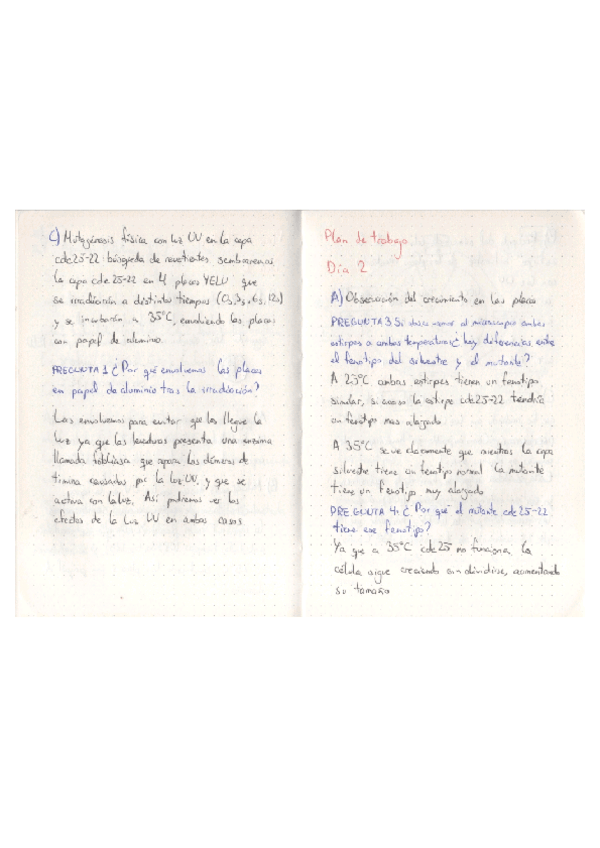 C) Mutagénesis física con luz UV en la cepa
cdc25-22: búsqueda de revertientes sembraremos
la cepa cdc25-22 en 4 placas YELU que
se irradiarán a distinto tiempos (0s, 3s, 6s, 12s)
y se incubarán a 35°C, envolviendo las placas
con papel de aluminio.
PREGUNTA 1 ¿Por qué envolvemos las placas
en papel de aluminio tras la irradiación?
Las envolvemos para evitar que les llegue la
luz ya que las levaduras presenta una enzima
llamada que repara los dímeros de
timina causados por la luz UV, y que se
activa con la luz. Así podremos ver los
efectos de la Luz UV en ambos casos
Plan de trabajo
Día 2
A) Observación del crecimiento en las placas
PREGUNTA 3 Si observamos al microscopio ambas
estirpes a ambas temperaturas ¿hay diferencias entre
el fenotipo del silvestre y el mutante?
A 25°C ambas estirpes tienen un fenotipo
similar, si acaso la estirpe cdc25-22 tendría
un fenotipo mas alargado
A 35°C se ve claramente que mientras la cepa
silvestre tiene un fenotipo normal la mutante
tiene un fenotipo muy alargado
PREGUNTA 4: ¿Por qué el mutante cdc25-22
tiene ese fenotipo?
Ya que a 35°C cdc25 no funciona la
célula sigue creciendo sin dividirse, aumentando
su tamaño